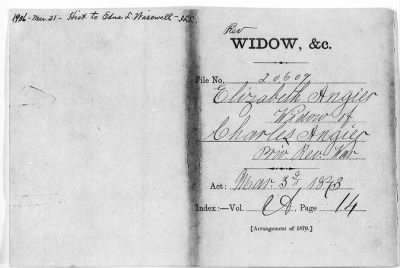 1926 - Mar 31 - Hist to Edna L. Wisewell - 
Rev
WIDOW, &c.
File No. 20609
Elizabeth Angier
Widow of
Charles Angier
Priv Rev. War
Act: Mar. 3d 1843
Index:—Vol. A, Page 14
[Arrangement of 1870.]